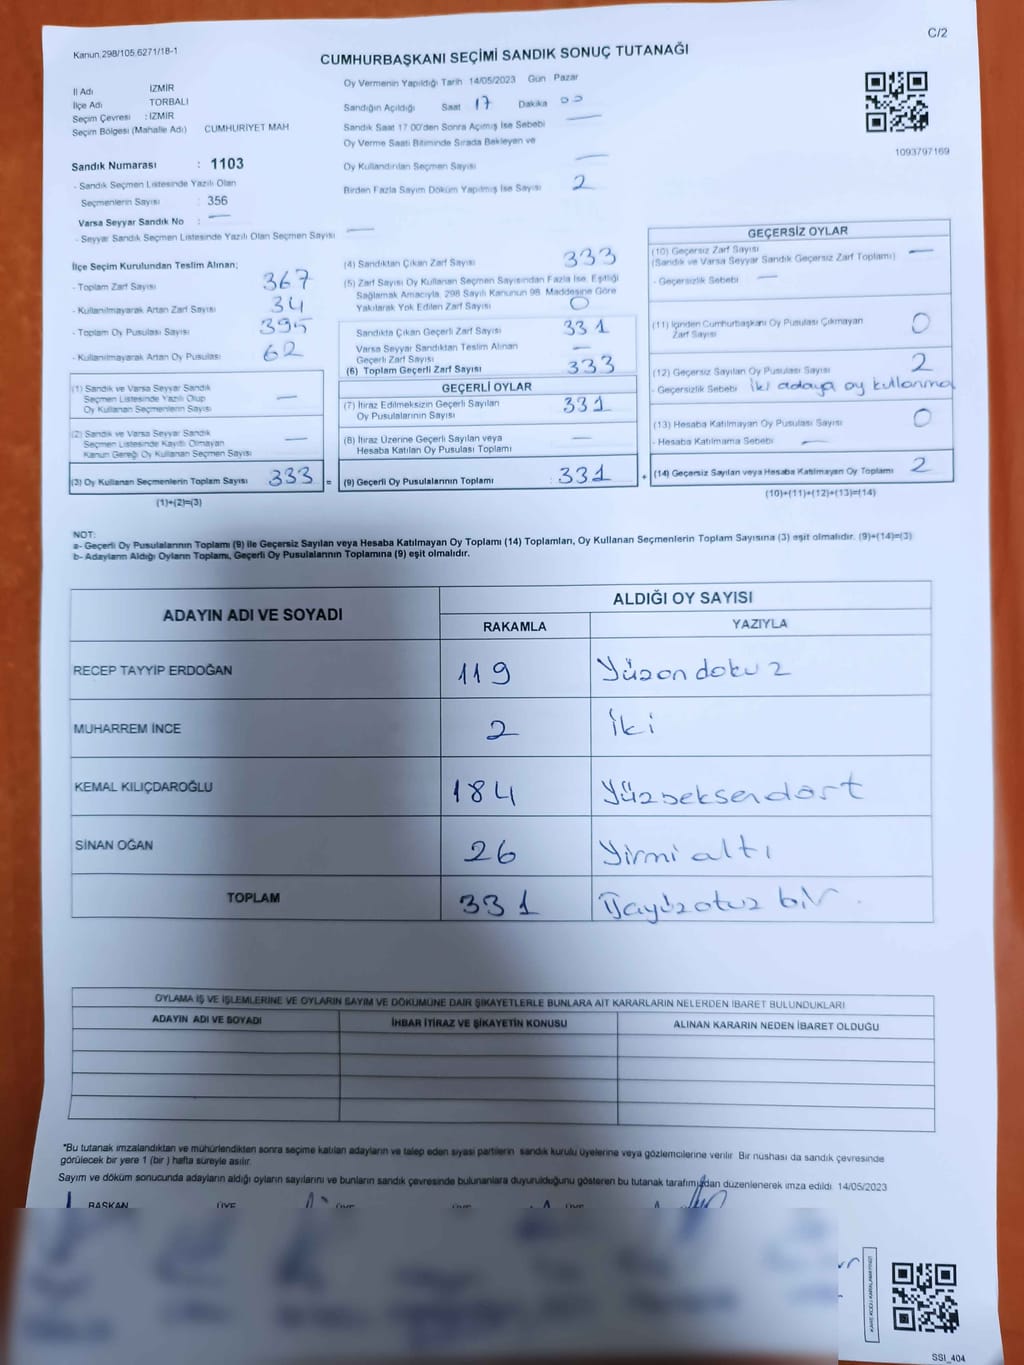 Kanun.298/105,6271/18-1
C/2
CUMHURBAŞKANI SEÇİMİ SANDIK SONUÇ TUTANAĞI
İl Adı İZMİR
İlçe Adı TORBALI
Seçim Çevresi : İZMİR
Seçim Bölgesi (Mahalle Adı) CUMHURİYET MAH
Sandık Numarası : 1103
- Sandık Seçmen Listesinde Yazılı Olan
Seçmenlerin Sayısı : 356
Varsa Seyyar Sandık No : —
- Seyyar Sandık Seçmen Listesinde Yazılı Olan Seçmen Sayısı —
Oy Vermenin Yapıldığı Tarih 14/05/2023 Gün Pazar
Sandığın Açıldığı Saat 17 Dakika 00
Sandık Saat 17.00'den Sonra Açımış İse Sebebi —
Oy Verme Saati Bitiminde Sırada Bekleyen ve
Oy Kullandırılan Seçmen Sayısı —
Birden Fazla Sayım Döküm Yapılmış İse Sayısı 2
1093797169
İlçe Seçim Kurulundan Teslim Alınan;
- Toplam Zarf Sayısı 367
- Kullanılmayarak Artan Zarf Sayısı 34
- Toplam Oy Pusulası Sayısı 395
- Kullanılmayarak Artan Oy Pusulası 62
(1) Sandık ve Varsa Seyyar Sandık
Seçmen Listesinde Yazılı Olup
Oy Kullanan Seçmenlerin Sayısı —
(2) Sandık ve Varsa Seyyar Sandık
Seçmen Listesinde Kayıtlı Olmayan
Kanun Gereği Oy Kullanan Seçmen Sayısı —
(3) Oy Kullanan Seçmenlerin Toplam Sayısı 333 =
(1)+(2)=(3)
(4) Sandıktan Çıkan Zarf Sayısı 333
(5) Zarf Sayısı Oy Kullanan Seçmen Sayısından Fazla İse, Eşitliği
Sağlamak Amacıyla, 298 Sayılı Kanunun 98. Maddesine Göre
Yakılarak Yok Edilen Zarf Sayısı 0
Sandıkta Çıkan Geçerli Zarf Sayısı 331
Varsa Seyyar Sandıktan Teslim Alınan
Geçerli Zarf Sayısı —
(6) Toplam Geçerli Zarf Sayısı 333
GEÇERLİ OYLAR
(7) İtiraz Edilmeksizin Geçerli Sayılan
Oy Pusulalarının Sayısı 331
(8) İtiraz Üzerine Geçerli Sayılan veya
Hesaba Katılan Oy Pusulası Toplamı —
(9) Geçerli Oy Pusulalarının Toplamı : 331 +
GEÇERSİZ OYLAR
(10) Geçersiz Zarf Sayısı —
(Sandık ve Varsa Seyyar Sandık Geçersiz Zarf Toplamı)
- Geçersizlik Sebebi —
(11) İçinden Cumhurbaşkanı Oy Pusulası Çıkmayan
Zarf Sayısı 0
(12) Geçersiz Sayılan Oy Pusulası Sayısı 2
- Geçersizlik Sebebi İki adaya oy kullanma
(13) Hesaba Katılmayan Oy Pusulası Sayısı 0
- Hesaba Katılmama Sebebi —
(14) Geçersiz Sayılan veya Hesaba Katılmayan Oy Toplamı 2
(10)+(11)+(12)+(13)=(14)
NOT:
a- Geçerli Oy Pusulalarının Toplamı (9) ile Geçersiz Sayılan veya Hesaba Katılmayan Oy Toplamı (14) Toplamları, Oy Kullanan Seçmenlerin Toplam Sayısına (3) eşit olmalıdır. (9)+(14)=(3)
b- Adayların Aldığı Oyların Toplamı, Geçerli Oy Pusulalarının Toplamına (9) eşit olmalıdır.
ADAYIN ADI VE SOYADI ALDIĞI OY SAYISI
RAKAMLA YAZIYLA
RECEP TAYYİP ERDOĞAN 119 Yüzondokuz
MUHARREM İNCE 2 İki
KEMAL KILIÇDAROĞLU 184 Yüzseksendört
SİNAN OĞAN 26 Yirmialtı
TOPLAM 331 Üçyüzotuz bir.
OYLAMA İŞ VE İŞLEMLERİNE VE OYLARIN SAYIM VE DÖKÜMÜNE DAİR ŞİKAYETLERLE BUNLARA AİT KARARLARIN NELERDEN İBARET BULUNDUKLARI
ADAYIN ADI VE SOYADI İHBAR İTİRAZ VE ŞİKAYETİN KONUSU ALINAN KARARIN NEDEN İBARET OLDUĞU
*Bu tutanak imzalandıktan ve mühürlendikten sonra seçime katılan adayların ve talep eden siyasi partilerin sandık kurulu üyelerine veya gözlemcilerine verilir. Bir nüshası da sandık çevresinde
görülecek bir yere 1 (bir ) hafta süreyle asılır.
Sayım ve döküm sonucunda adayların aldığı oyların sayılarını ve bunların sandık çevresinde bulunanlara duyurulduğunu gösteren bu tutanak tarafımızdan düzenlenerek imza edildi. 14/05/2023
BAŞKAN ÜYE ÜYE ÜYE ÜYE
SSI_404